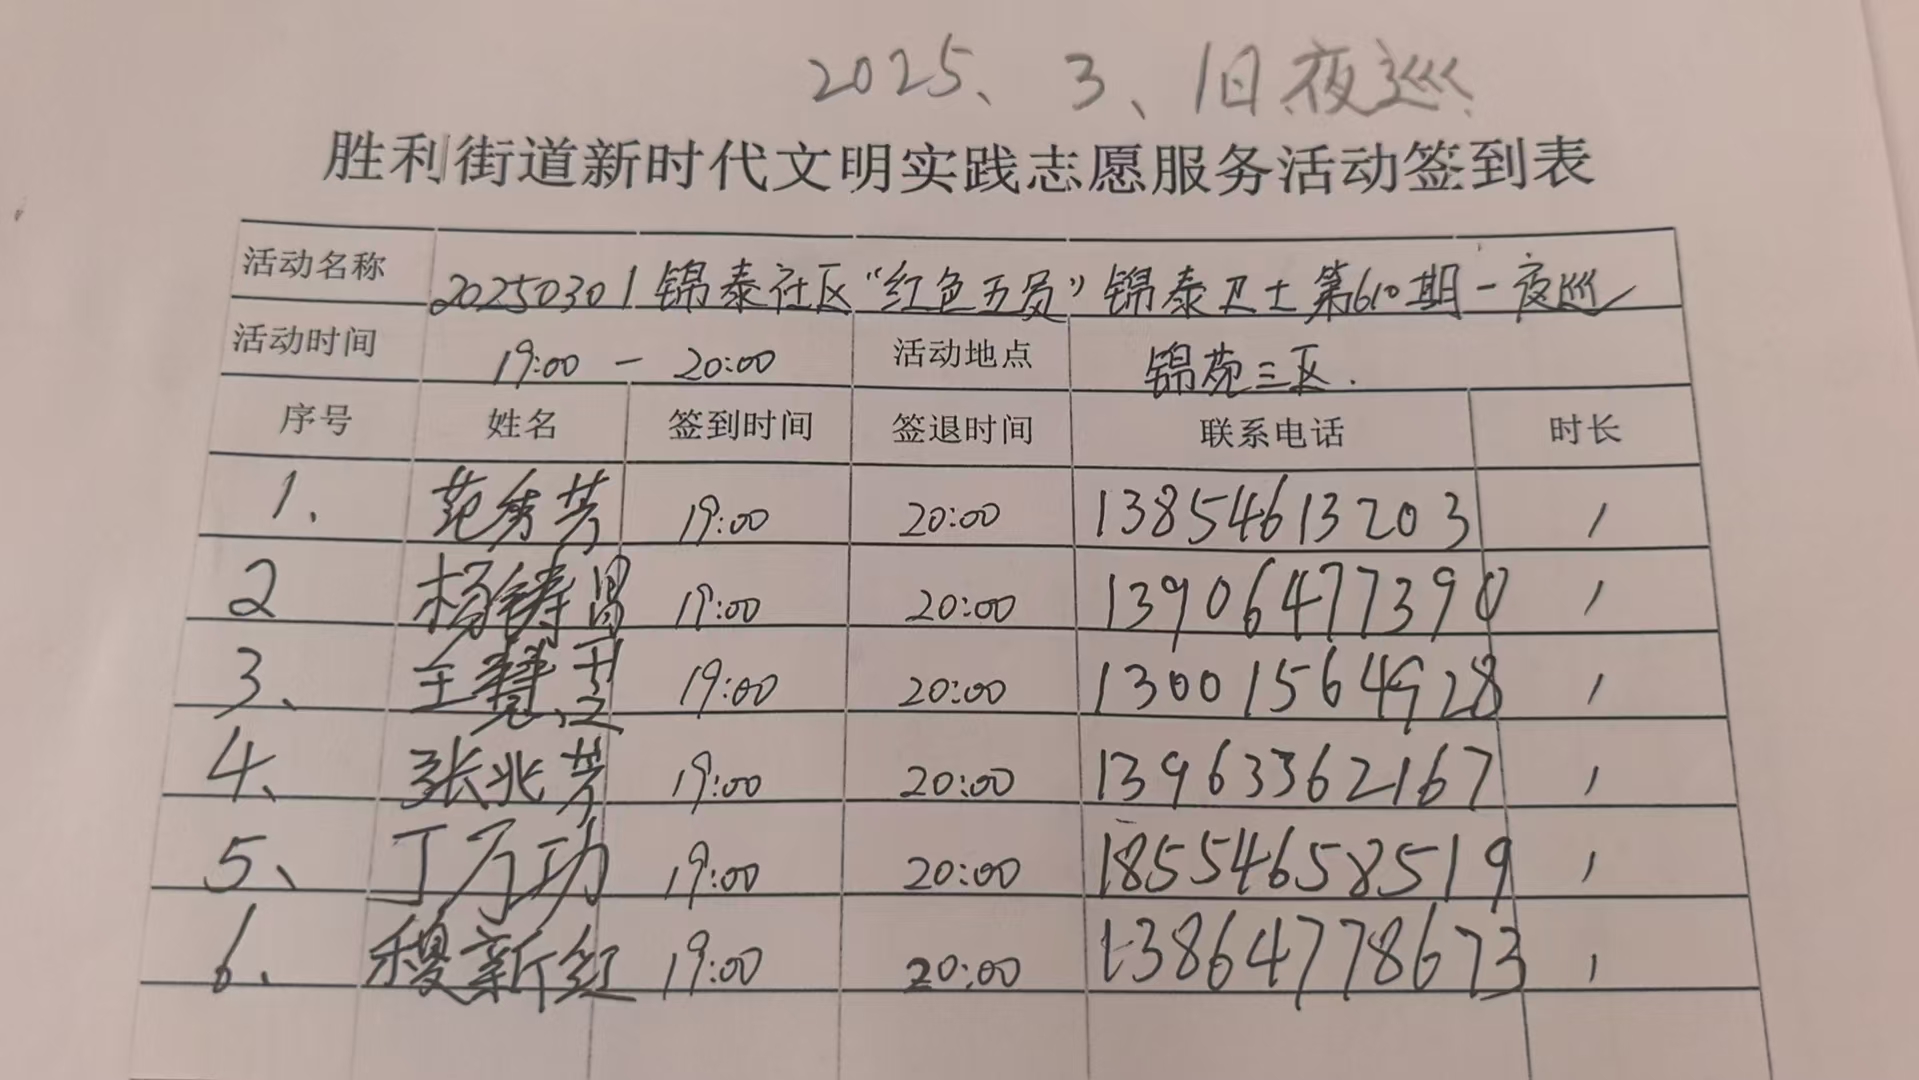 2025、3、1日夜巡
胜利街道新时代文明实践志愿服务活动签到表
活动名称 20250301锦泰社区“红色五员”锦泰卫士第610期-夜巡
活动时间 19:00 - 20:00 活动地点 锦苑三区.
序号 姓名 签到时间 签退时间 联系电话 时长
1、 范秀芳 19:00 20:00 13854613203 1
2 杨铸 19:00 20:00 13906477390 1
3、 王慧 19:00 20:00 13001564928 1
4、 张兆芳 19:00 20:00 13963362167 1
5、 丁万功 19:00 20:00 18554658519 1
6、 稷新红 19:00 20:00 13864778673 1